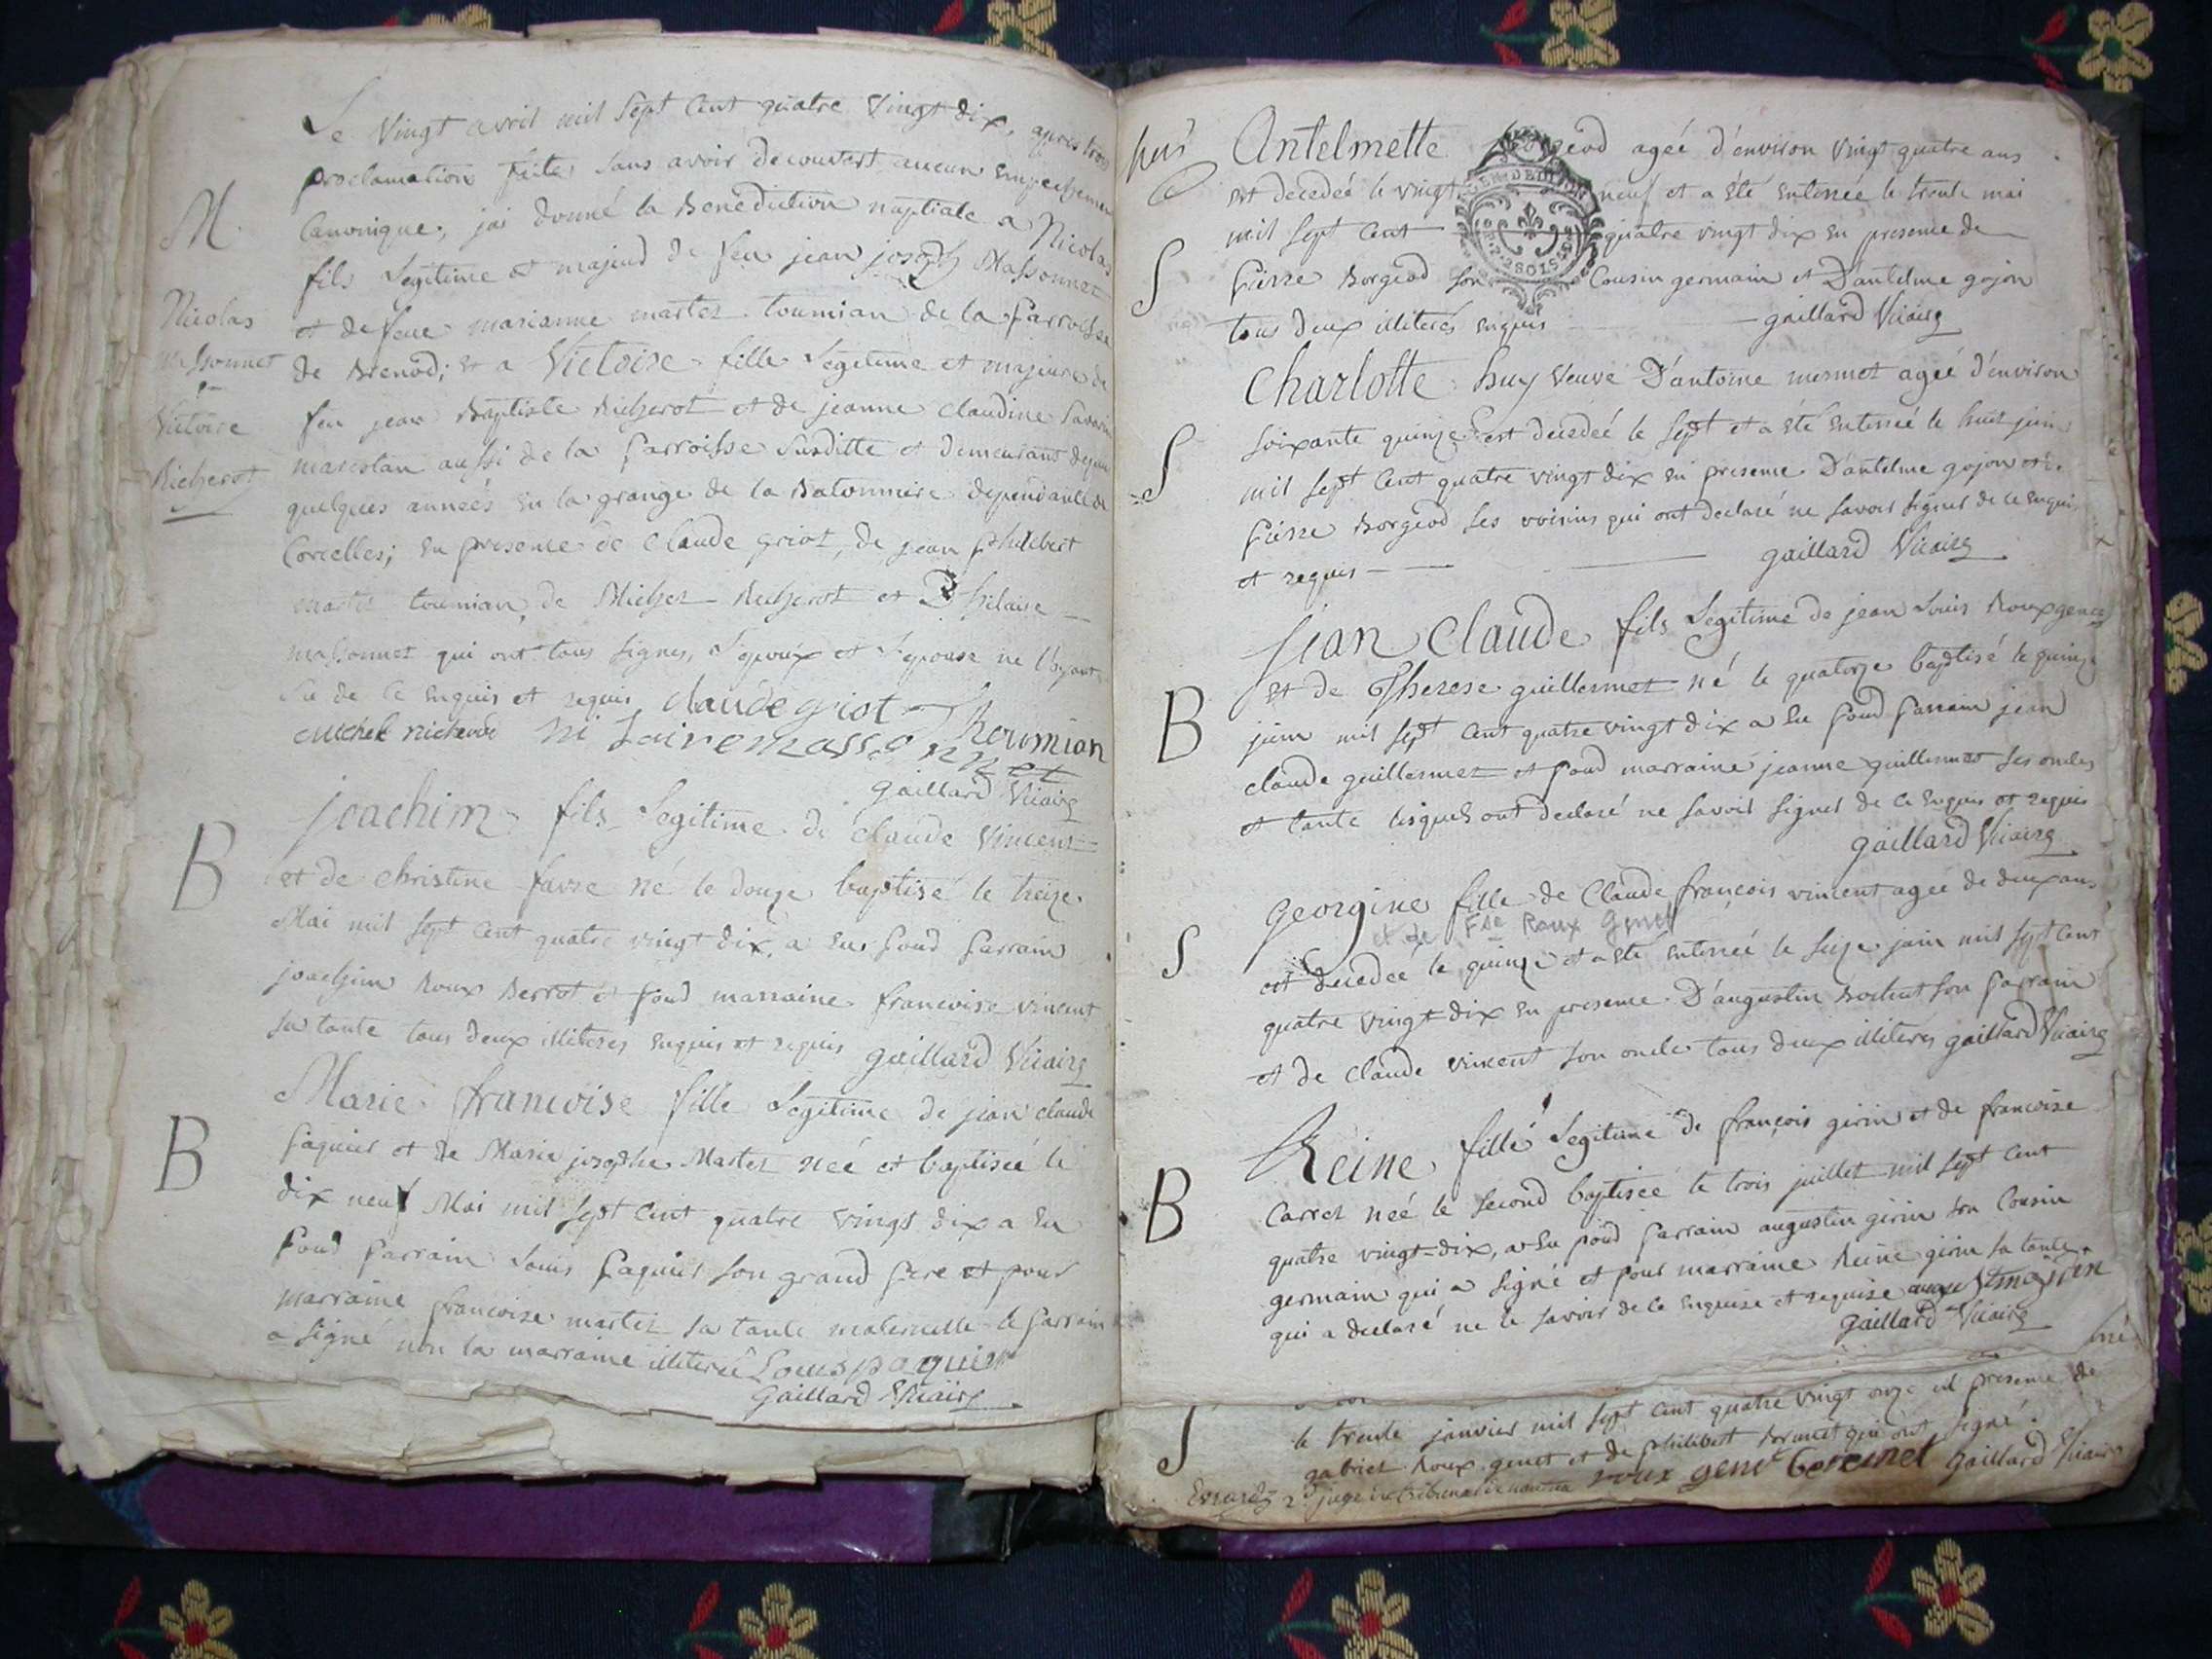 Le Vingt avril mil Sept Cent quatre Vingt dix, apres trois
proclamation faites sans avoir decouvert aucun Empechemen
M
Canonique, jai donné la Benediction nuptiale a Nicolas
fils Legitime et majeur de feu jean joseph Massonnet
Nicolas
massonnet
&
Victoire
Richerot
et de feue marianne martez toumian de la parroisse
de Brenod; et a Victoire fille Legitime et majeure de
feu jean Baptiste Richerot et de jeanne claudine Savarin
marestan aussi de la parroisse Susditte et demeurant depuis
quelques années en la grange de la Batonniere dependante de
Corcelles; en presence de Claude griot, de jean philibert
martez toumian, de Michel Richerot et D hilaire
massonnet qui ont tous signés, L'epoux et L'epouse ne l'ayant
Su de ce enquis et requis claude griot Thoumian
michel richerot hi Laire massonnet
gaillard Vicaire
B
joachim fils Legitime de claude Vincent
et de christine favre né le douze baptisé le treize
Mai mil sept cent quatre vingt dix a eu pour parrain
joachim Roux Berrot et pour marraine francoise vincent
sa tante tous deux illiteres enquis et requis gaillard Vicaire
B
Marie francoise fille Legitime de jean claude
paquier et de Marie josephe Martez née et baptisée le
dix neuf Mai mil sept cent quatre vingt dix a eu
pour parrain Louis paquier son grand pere et pour
marraine francoise martez sa tante maternelle le parrain
a signé non la marraine illiterée Louis paquier
gaillard Vicaire
S
Antelmette Borgeod agée d'environ vingt quatre ans
est decedeé le vingt neuf et a été enterrée le trente mai
mil sept cent quatre vingt dix en presence de
pierre Borgeod son Cousin germain et D'antelme gojon
tous deux illiterés enquis gaillard Vicaire
GEN. DE DIJON
2 SOLS
S
Charlotte huy veuve D'antoine mermet agée d'environ
soixante quinze est decedeé le sept et a été enterrée le huit juin
mil sept cent quatre vingt dix en presence D'antelme gojon et de
pierre Borgeod ses voisins qui ont declaré ne savoir signer de ce enquis
et requis gaillard Vicaire
B
Jean Claude fils Legitime de jean Louis Roux genet
et de Therese guillermet né le quatorze baptisé le quinze
juin mil sept cent quatre vingt dix a eu pour parrain jean
claude guillermet et pour marraine jeanne guillermet ses oncles
et tante lesquels ont declaré ne savoir signer de ce enquis et requis
gaillard Vicaire
S
georgine fille de Claude françois vincent agée de deux ans
et de Fse Roux Genet
est decedeé le quinze et a été enterrée le seize juin mil sept cent
quatre vingt dix en presence D'augustin Bochut son parrain
et de claude vincent son oncle tous deux illiterés gaillard Vicaire
B
Reine fille Legitime de françois girin et de francoise
Carrez née le second baptisée le trois juillet mil sept cent
quatre vingt dix, a eu pour parrain augustin girin son Cousin
germain qui a signé et pour marraine Reine girin sa tante
qui a declaré ne le savoir de ce enquise et requise augustin girin
gaillard Vicaire
S
le trente janvier mil sept cent quatre vingt onze en presence de
gabriel Roux genet et de philibert Brunet qui ont signé.
2d juge du tribunal de nantua roux genet Brunet gaillard Vicaire